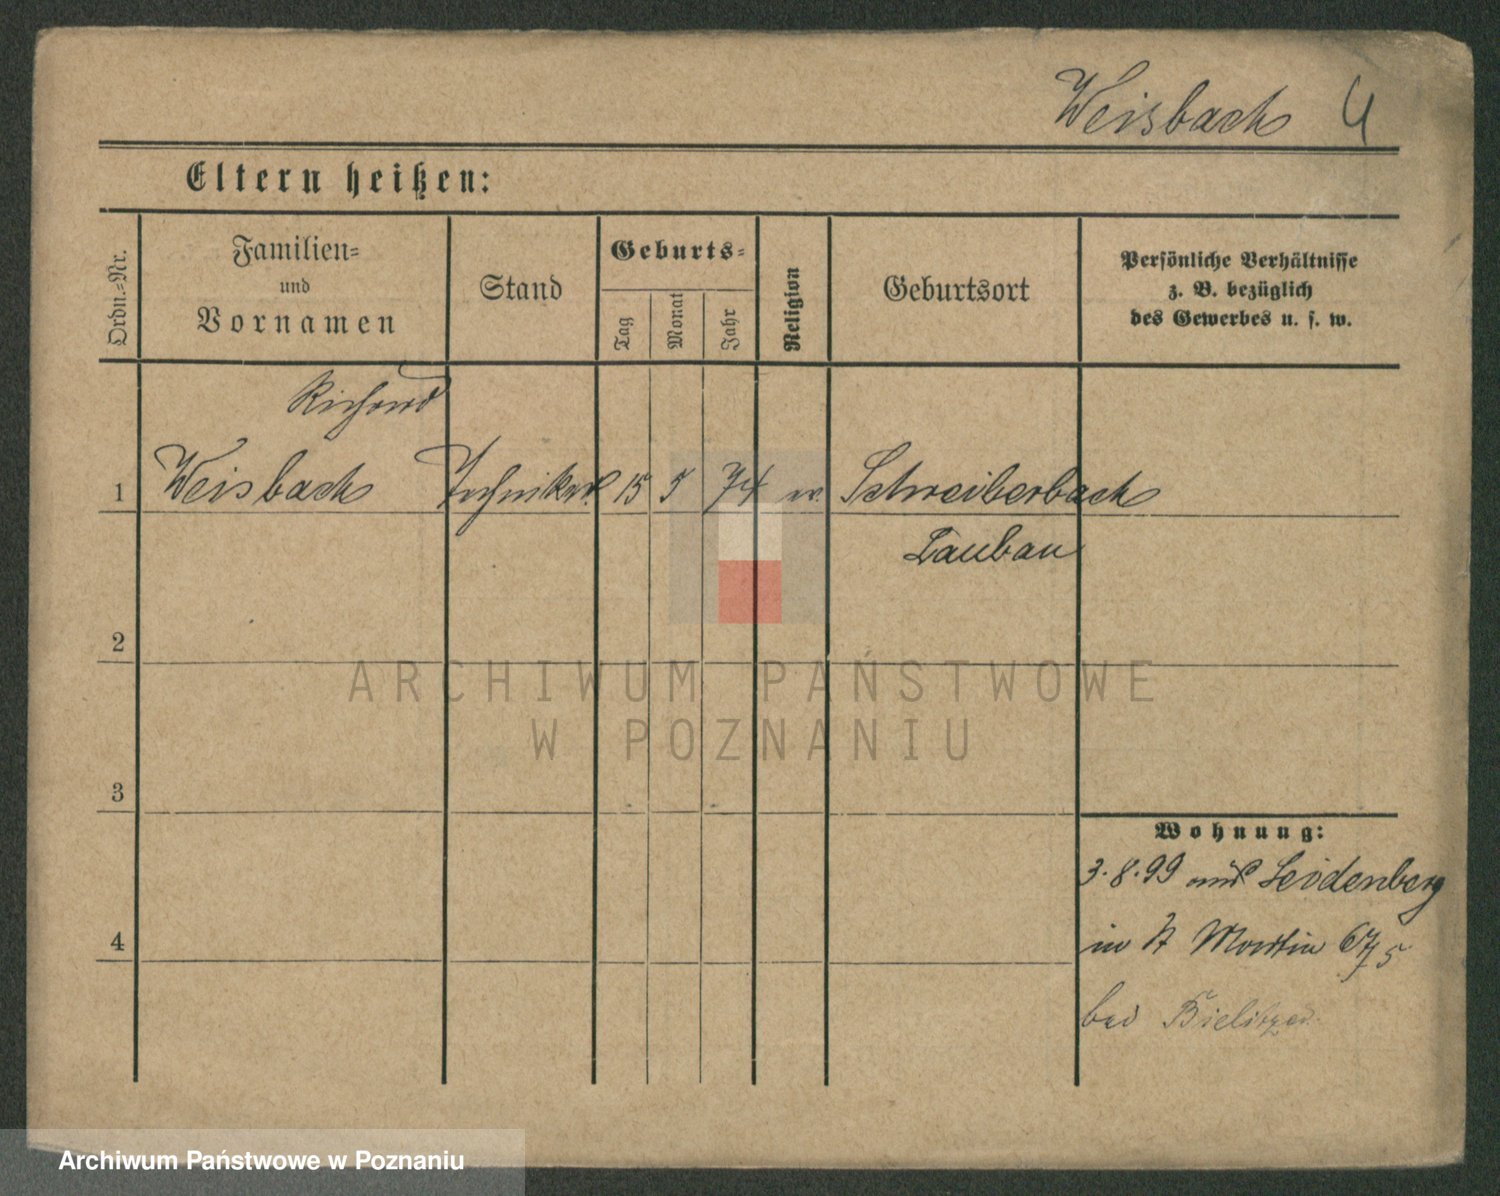 Weisbach 4
Eltern heißen:
Ordn.=Nr.
Familien=
und
Vornamen
Stand
Geburts=
Tag
Monat
Jahr
Religion
Geburtsort
Persönliche Verhältnisse
z. B. bezüglich
des Gewerbes u. s. w.
Richard
1 Weisbach Techniker 15 5 74 ev. Schreiberbach
Lauban
2
ARCHIWUM PAŃSTWOWE
W POZNANIU
3
Wohnung:
3.8.99 aus Seidenberg
4
in St Martin 67
bei Bielitzer
Archiwum Państwowe w Poznaniu